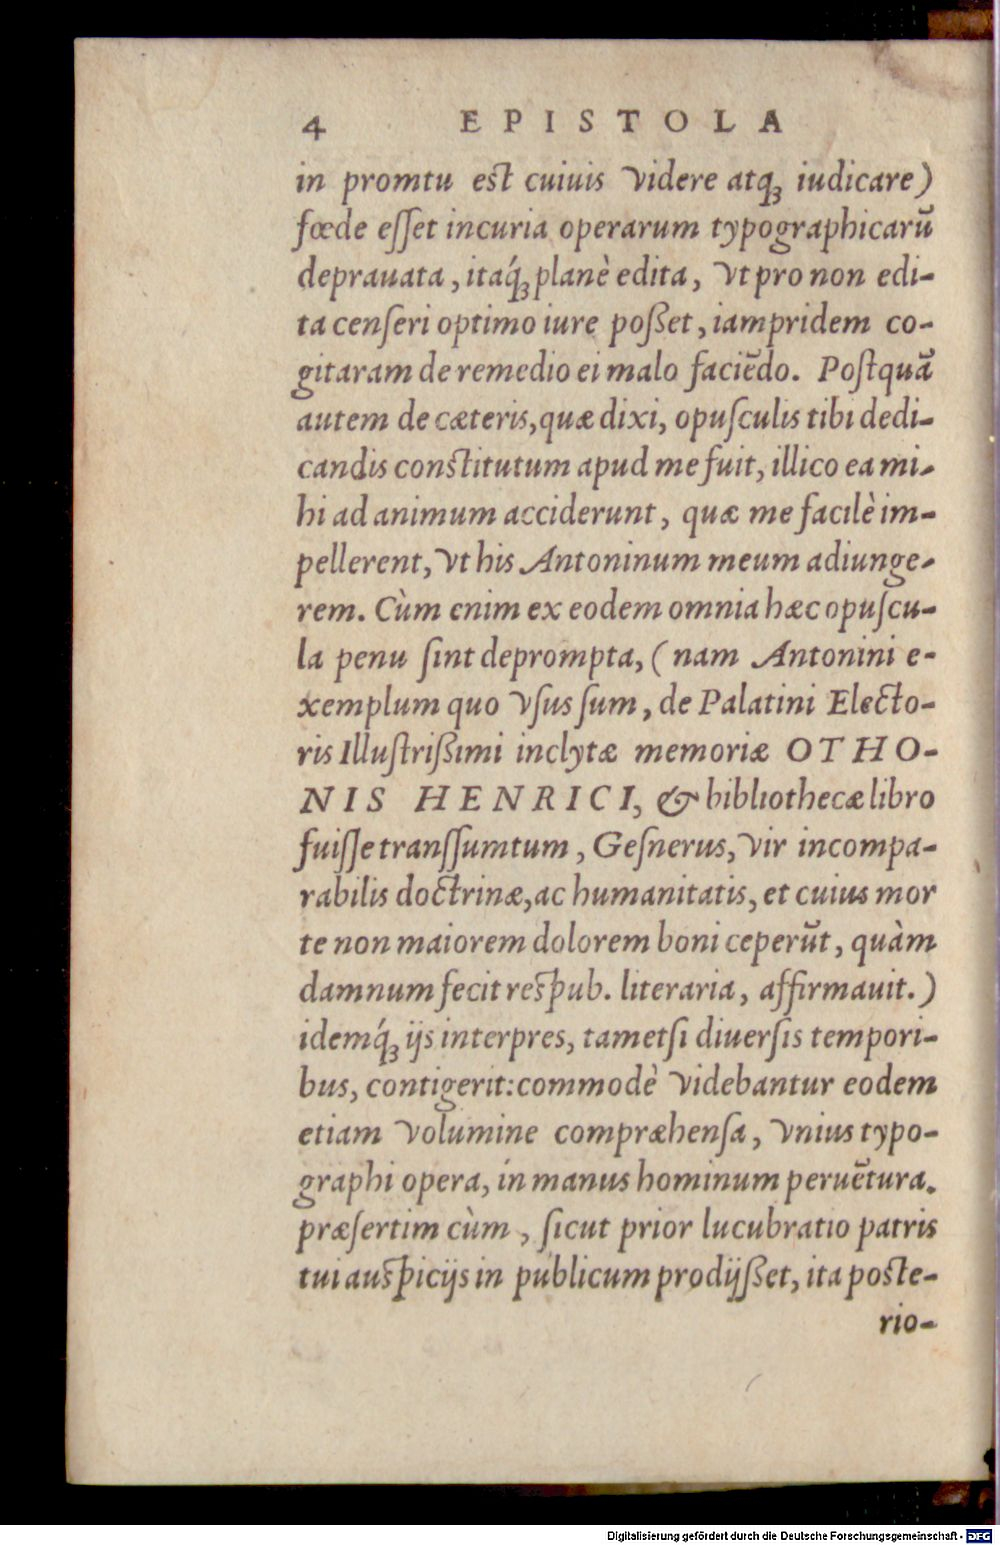 4 EPISTOLA
in promtu est cuiuis videre atq́ꝫ iudicare)
fœde eſſet incuria operarum typographicarũ
deprauata, itaq́ꝫ planè edita, vt pro non edi-
ta cenſeri optimo iure poßet, iampridem co-
gitaram de remedio ei malo faciẽdo. Poſtquã
autem de cæteris, quæ dixi, opuſculis tibi dedi-
candis constitutum apud me fuit, illico ea mi-
hi ad animum acciderunt, quæ me facilè im-
pellerent, vt his Antoninum meum adiunge-
rem. Cùm enim ex eodem omnia hæc opuſcu-
la penu ſint deprompta, (nam Antonini e-
xemplum quo vſus ſum, de Palatini Electo-
ris Illuſtrißimi inclytæ memoriæ OTHO-
NIS HENRICI, & bibliothecæ libro
fuiſſe tranſſumtum, Geſnerus, vir incompa-
rabilis doctrinæ, ac humanitatis, et cuius mor
te non maiorem dolorem boni ceperũt, quàm
damnum fecit reſpub. literaria, affirmauit.)
idemq́ꝫ ijs interpres, tametſi diuerſis tempori-
bus, contigerit: commodè videbantur eodem
etiam volumine compræhenſa, vnius typo-
graphi opera, in manus hominum peruẽtura.
præſertim cùm, ſicut prior lucubratio patris
tui auſpicijs in publicum prodijßet, ita poste-
rio-
Digitalisierung gefördert durch die Deutsche Forschungsgemeinschaft - DFG